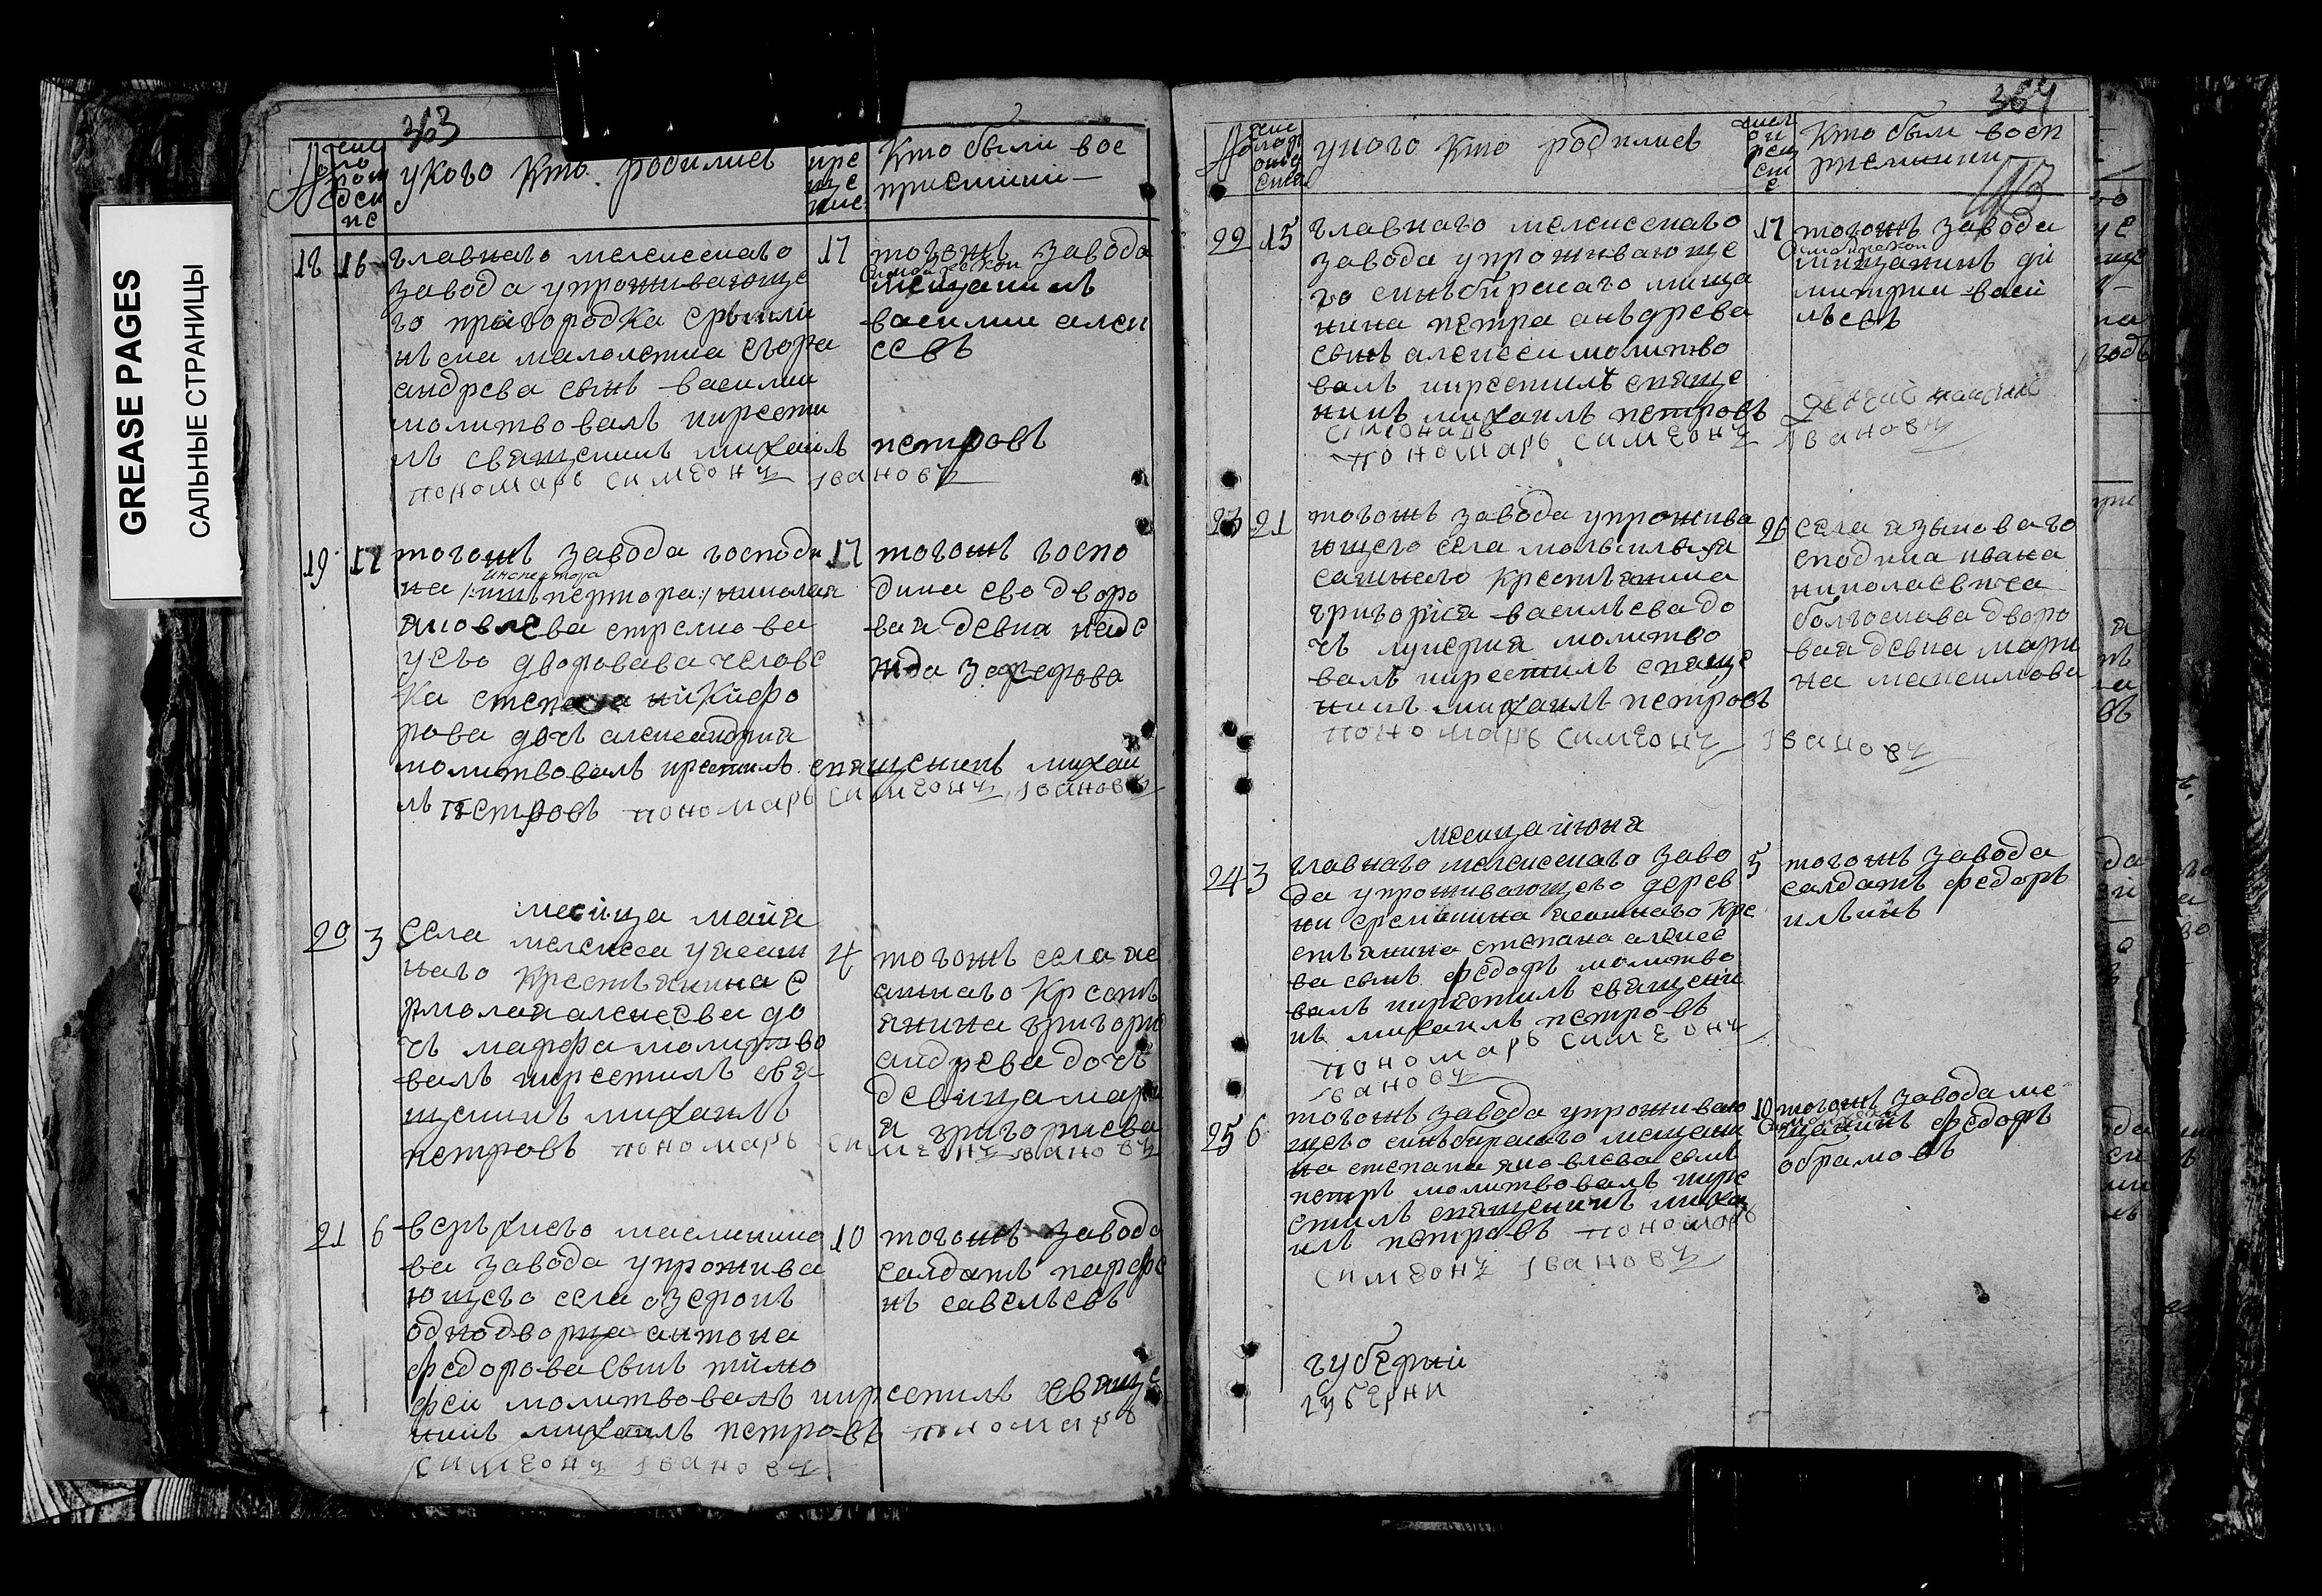 GREASE PAGES
САЛЬНЫЕ СТРАНИЦЫ
363
у кого кто родилися
кто были вос
приемники
18 16 главнаго мелекескаго
завода у проживающе
го пригородка ерыкли
нъска малолетка егора
андрева сынъ василии
молитвовалъ икрести
лъ священикъ михаилъ петровъ
пономарь симеонъ ивановъ
17 тогожъ завода
симбирской
мещанинъ
василии алек
сеевъ
19 17 тогожъ завода господи
на инспектора николая
яковлева стрелкова
у его дворовава челове
ка степана никифо
рова дочь александрия
молитвовалъ крестилъ священикъ михаи
лъ петровъ пономарь симеонъ ивановъ
17 тогожъ госпо
дина ево дворо
вая девка наде
жда захарова
месяца майя
20 3 села мелекеса у ясаш
наго крестьянина е
рмолая алексева до
чь марфа молитво
валъ икрестилъ свя
щеникъ михаилъ
петровъ пономарь симеонъ ивановъ
4 тогожъ села яс
ашнаго кресть
янина григорья
андрева дочь
девица мари
я григорьева
21 6 верьхнего масленико
ва завода у прожива
ющего села озерокъ
однодворца антона
федорова сынъ тимо
феи молитвовалъ икрестилъ свяще
никъ михаилъ петровъ пономарь
симеонъ ивановъ
10 тогожъ завода
салдатъ парфе
нъ савельевъ
364
у кого кто родилися
кто были восп
риемники
22 15 главнаго мелекескаго
завода у проживающе
го синьбирскаго меща
нина петра аньдрева
сынъ алексеи молитво
валъ икрестилъ свяще
никъ михаилъ петровъ
пономарь симеонъ ивановъ
17 тогожъ завода
симбирской
мищанинъ ди
митрии васи
льевъ
23 21 тогожъ завода у прожива
ющего села
сашнаго крестьянина
григорiя васильева до
чь лукерия молитво
валъ икрестилъ свяще
никъ михаилъ петровъ
пономарь симеонъ ивановъ
26 села языкова го
сподина ивана
николаевича
дворо
вая девка мари
на максимова
месяца июня
24 3 главнаго мелекескаго заво
да у проживающего дерев
ни еремкина ясашнаго кре
стьянина степана алексе
ва сынъ федоръ молитво
валъ икрестилъ священи
къ михаилъ петровъ
пономарь симеонъ
ивановъ
5 тогожъ завода
салдатъ федоръ
ильинъ
25 6 тогожъ завода у проживаю
щего синьбирского мещани
на степана яковлева сынъ
петръ молитвовалъ икре
стилъ священикъ миха
илъ петровъ пономарь
симеонъ ивановъ
10 тогожъ завода ме
щанинъ федоръ
обрамовъ
губернiи
губерни